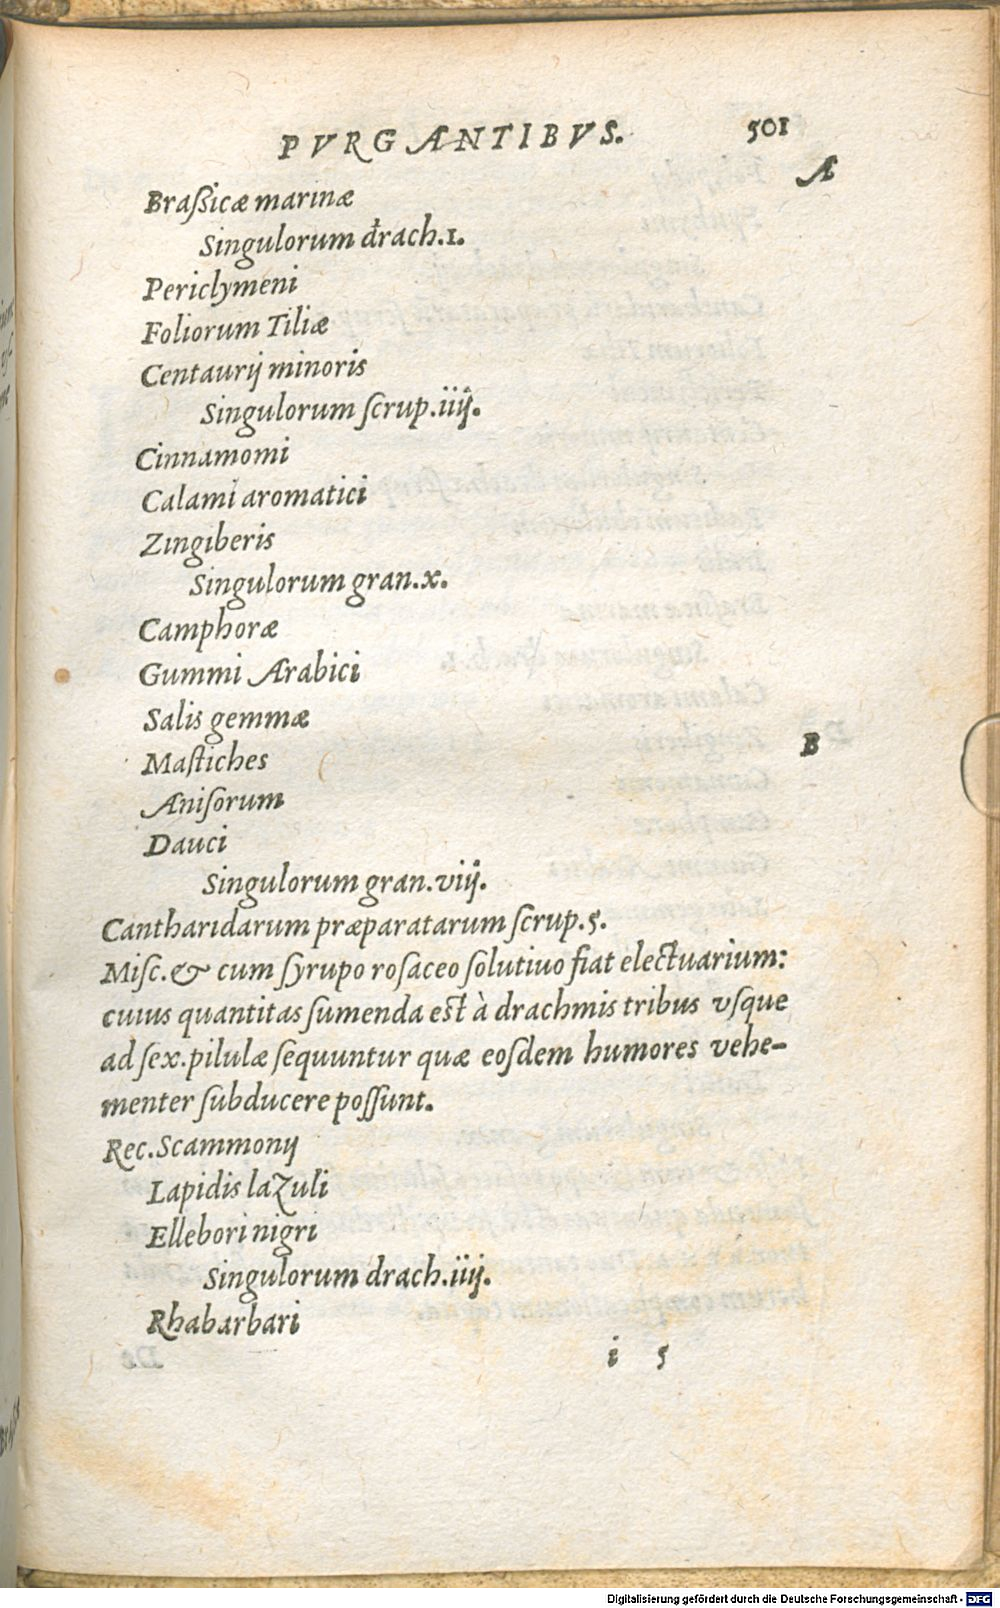 PVRGANTIBVS. 501
A
Braſsicæ marinæ
Singulorum drach.1.
Periclymeni
Foliorum Tiliæ
Centaurij minoris
Singulorum ſcrup.iiij.
Cinnamomi
Calami aromatici
Zingiberis
Singulorum gran.x.
Camphoræ
Gummi Arabici
Salis gemmæ
B
Maſtiches
Aniſorum
Dauci
Singulorum gran.viij.
Cantharidarum præparatarum ſcrup.5.
Miſc.& cum ſyrupo roſaceo ſolutiuo fiat electuarium:
cuius quantitas ſumenda eſt à drachmis tribus vſque
ad ſex.pilulæ ſequuntur quæ eoſdem humores vehe-
menter ſubducere poſſunt.
Rec.Scammonij
Lapidis lazuli
Ellebori nigri
Singulorum drach.iiij.
Rhabarbari
i 5
Digitalisierung gefördert durch die Deutsche Forschungsgemeinschaft - DFG